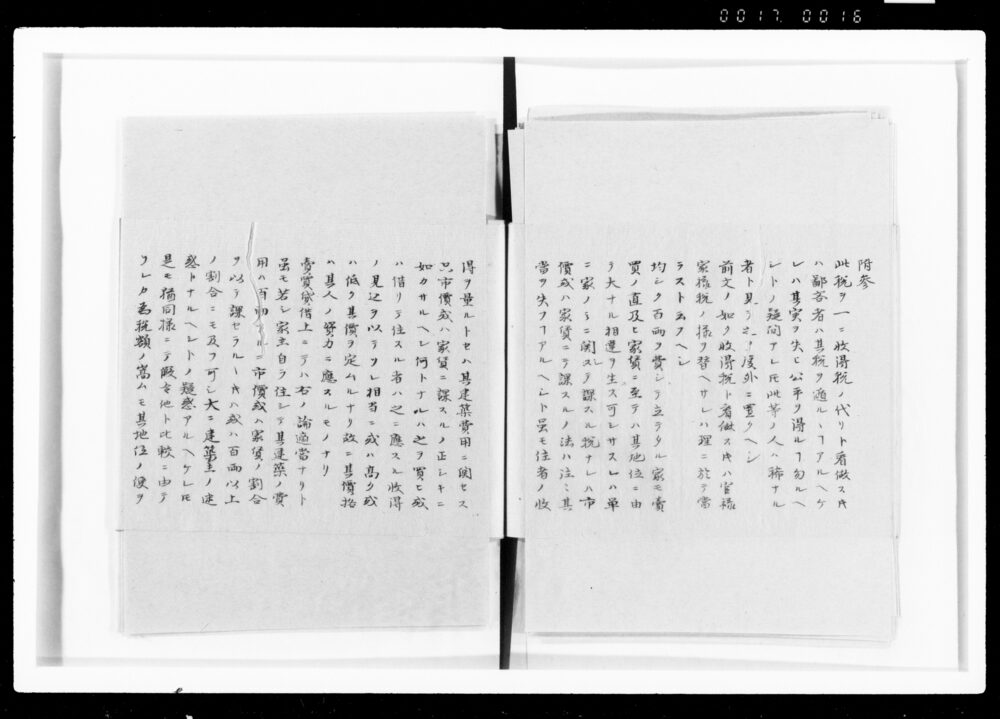 0017. 0016
附参
此税ヲ一ニ收得税ノ代リト看做スキ
ハ鄙吝者ハ其税ヲ遁ルヽ丨アルヘケ
レハ其実ヲ失ヒ公平ヲ得ル丨勿ルヘ
シトノ疑問アレ𪜈此等ノ人ハ稀ナル
者ト見テ度外ニ置クヘシ
前文ノ如ク收得税ト看做スキハ官禄
家禄税ノ様ヲ替ヘサレハ理ニ於テ當
ラスト云フヘシ
均シク百両ヲ費シテ立テタル家モ賣
買ノ直及ヒ家賃ニ至テハ其地位ニ由
テ大ナル相違ヲ生ス可シサスレハ単
ニ家ノミニ関ステ課スル税ナレハ市
價或ハ家賃ニテ課スルノ法ハ注ミ其
當ヲ失フ丨アルヘシト虽モ住者ノ收
得ヲ量ルトセハ其建築費用ニ関セス
只市價或ハ家賃ニ課スルノ正シキニ
如カサルヘシ何トナルハ之ヲ買ヒ或
ハ借リテ住スル者ハ之ニ應スル收得
ノ見込ヲ以テシレ相当ニ或ハ高ク或
ハ低ク其價ヲ定ムルナリ故ニ其價格
ハ其人ノ資力ニ應スルモノナリ
賣買貸借上ニテハ右ノ論適當ナリト
虽モ若シ家主自ラ住シテ其建築ノ費
用ハ百両ナルニ市價或ハ家賃ノ割合
ヲ以テ課セラルヽキハ或ハ百両以上
ノ割合ニモ及フ可シ大ニ建築主ノ迷
惑トナルヘシトノ疑惑アルヘケレ𪜈
是モ猶同様ニテ畢竟他ト比較ニ由テ
ソレカ為税額ノ嵩ムモ其地位ノ便ヲ